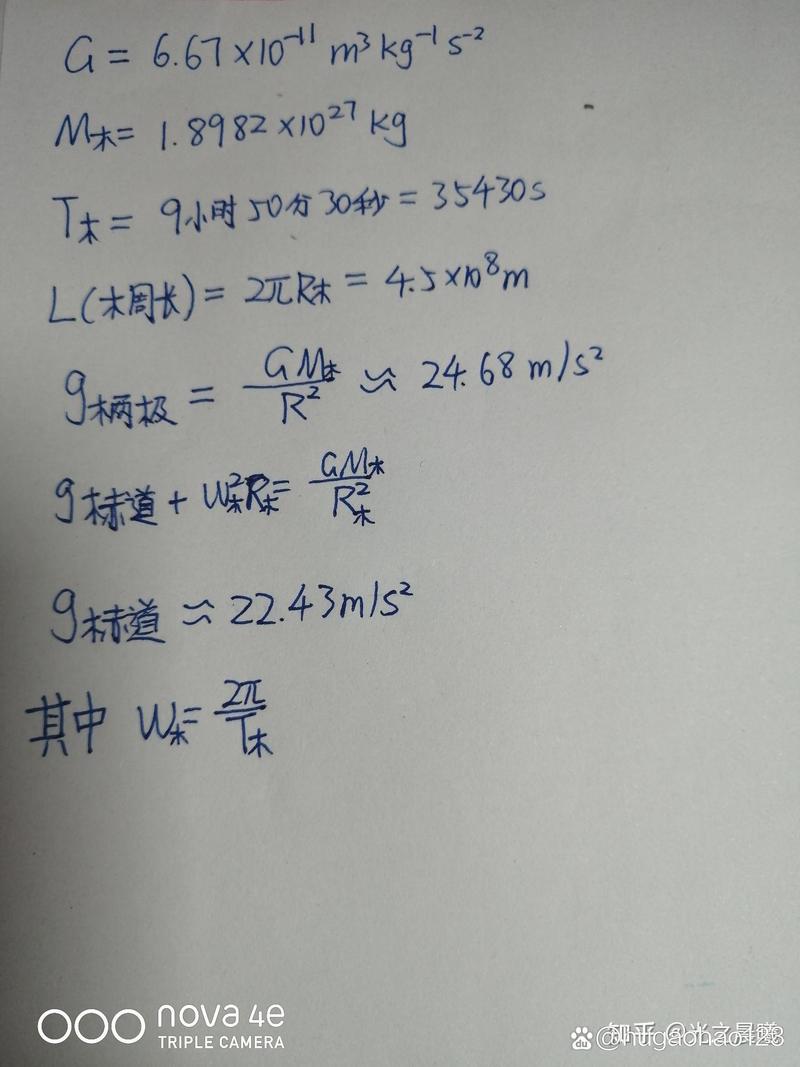 G = 6.67×10⁻¹¹ m³ kg⁻¹ s⁻²
M木 = 1.8982×10²⁷ kg
T木 = 9小时50分30秒 = 35430s
L(木周长) = 2πR木 = 4.5×10⁸m
g木两极 = GM木/R² ≈ 24.68 m/s²
g木赤道 + W木²R木 = GM木/R木²
g木赤道 ≈ 22.43m/s²
其中 W木 = 2π/T木
nova 4e
TRIPLE CAMERA
知乎 @光之晨曦
@hugaohao123